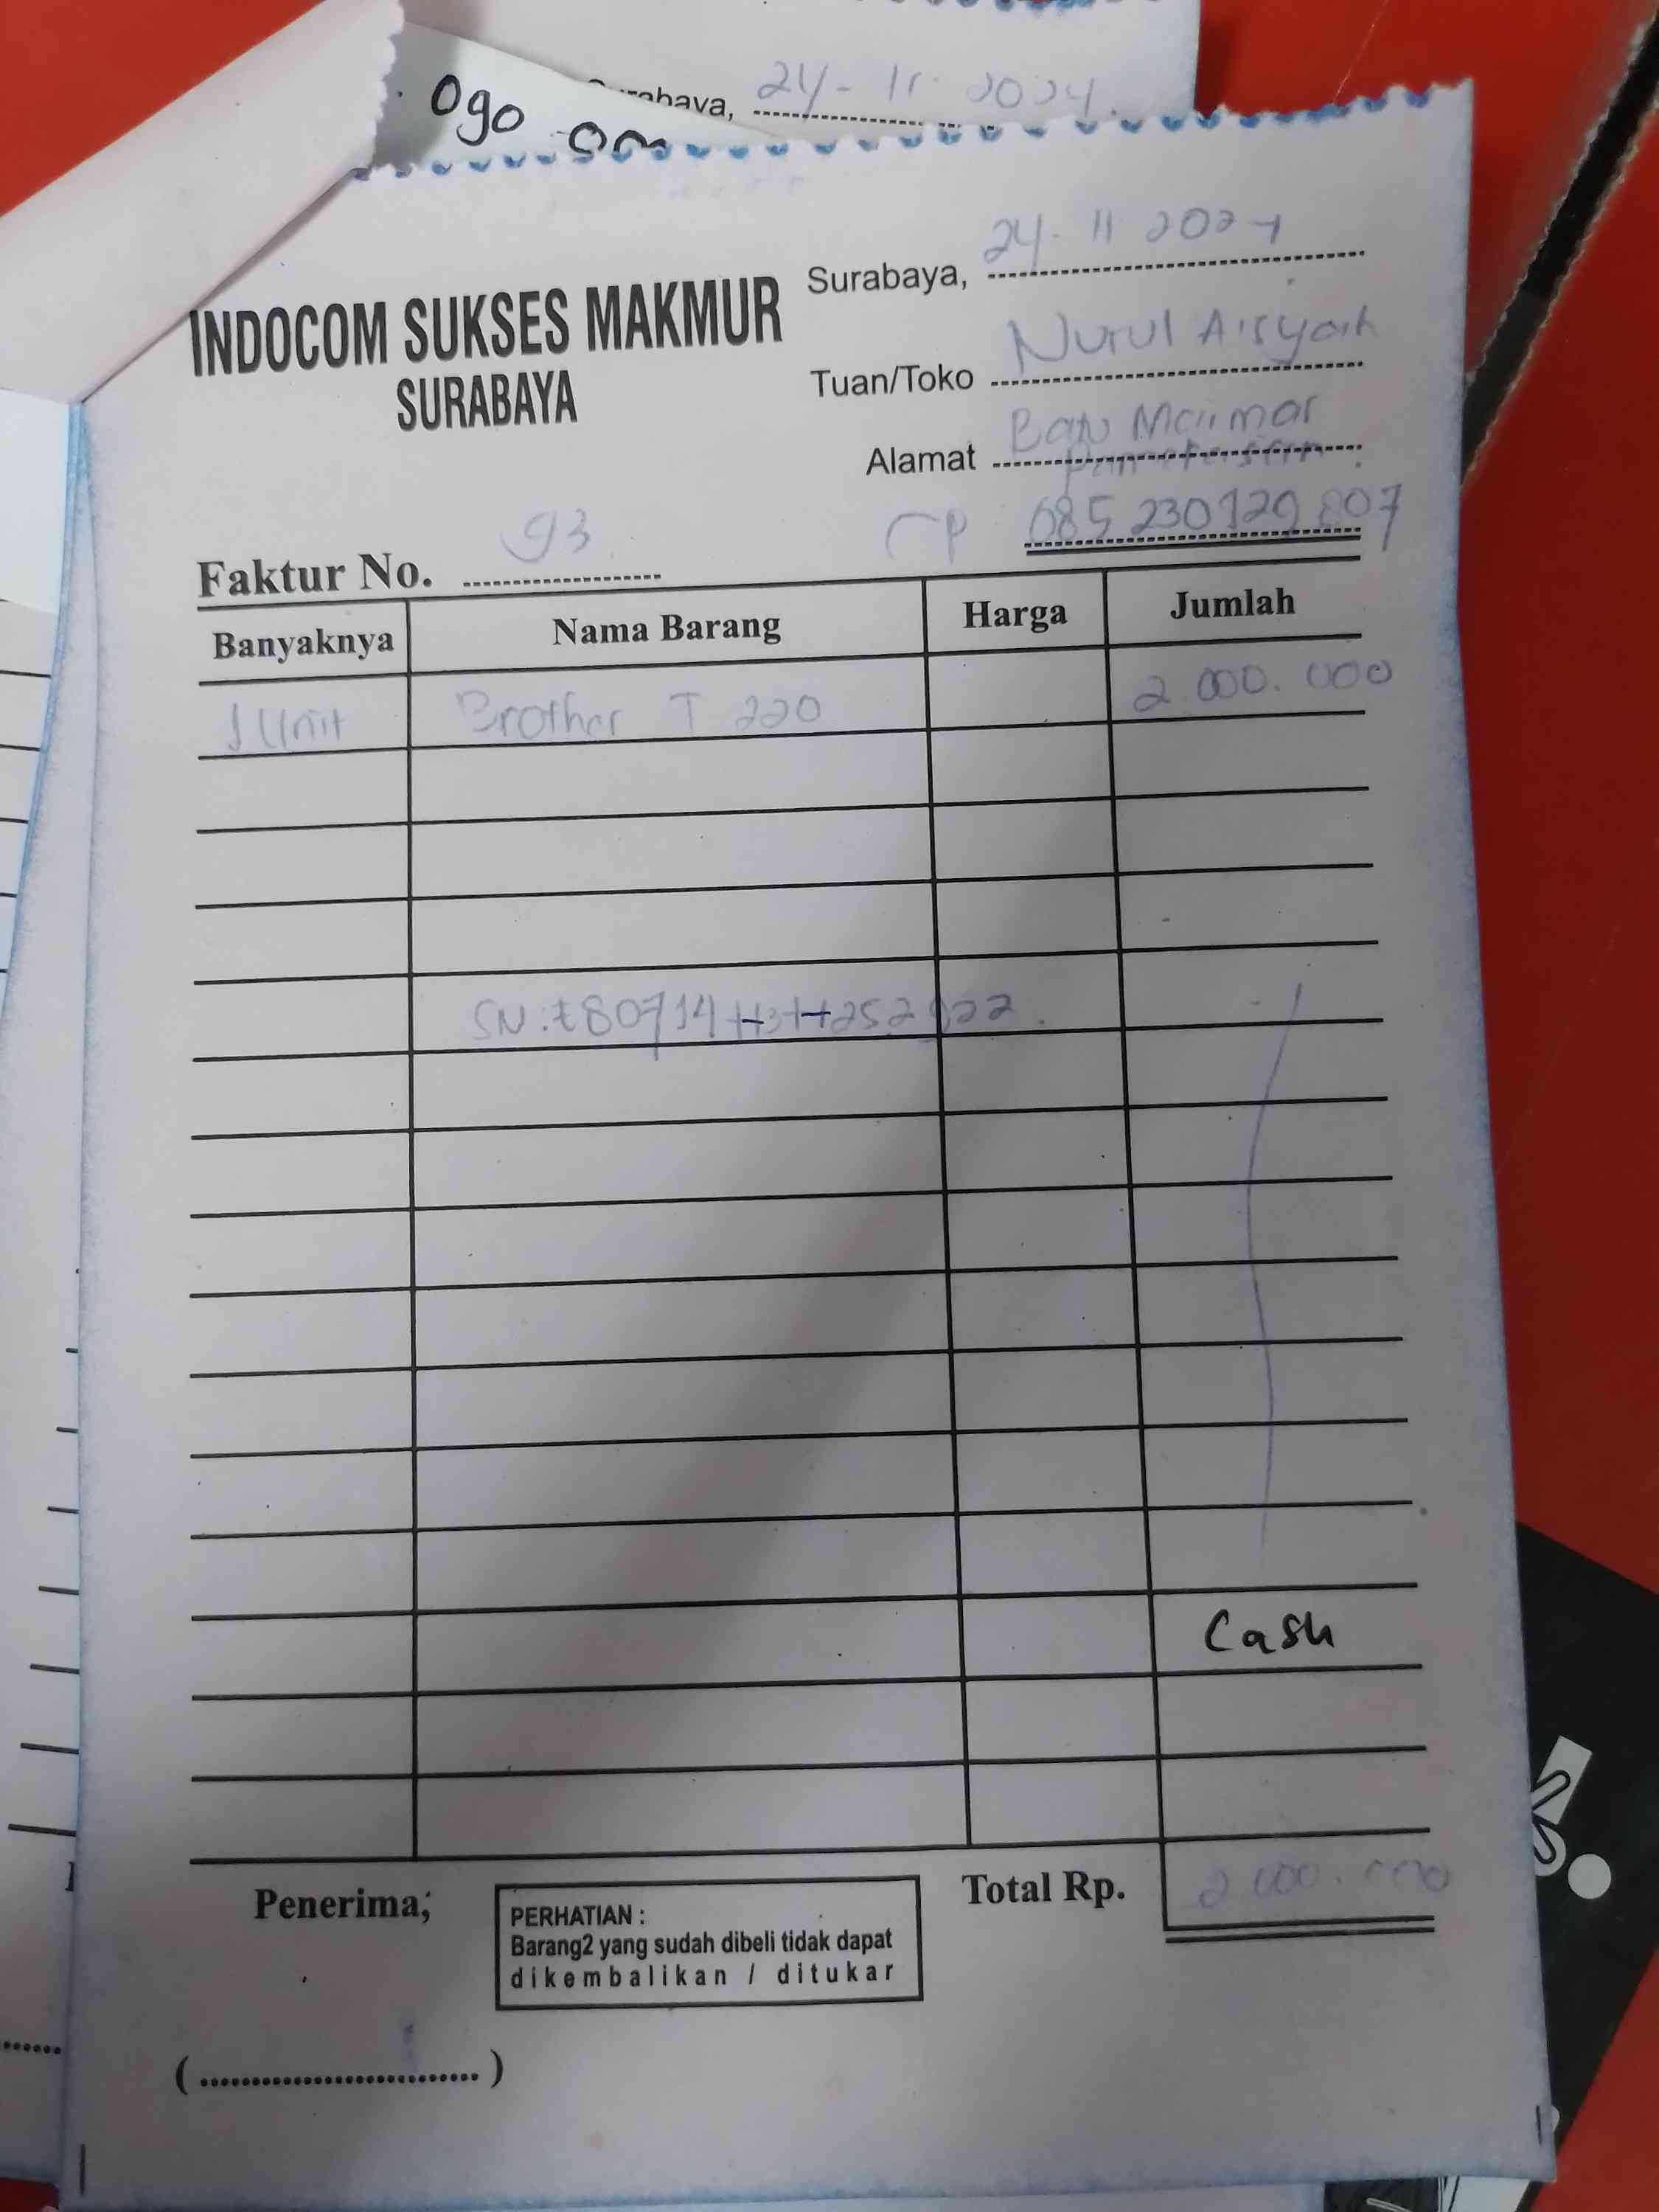 090
24-11-2024
INDOCOM SUKSES MAKMUR
SURABAYA
Surabaya, 24-11 2024
Tuan/Toko Nurul Aisyah
Alamat
CP 085 230 129 807
Faktur No. 93
Banyaknya Nama Barang Harga Jumlah
1 Unit Brother T 220 2.000.000
SN:
Cash
Penerima;
PERHATIAN :
Barang2 yang sudah dibeli tidak dapat
dikembalikan / ditukar
Total Rp. 2.000.000
(............................)